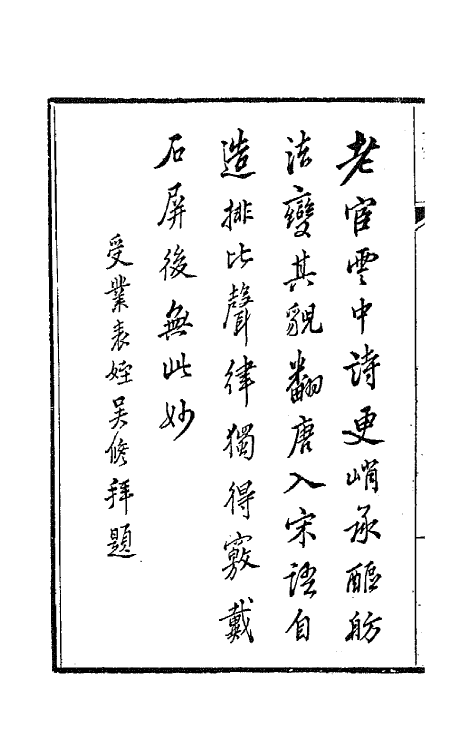 老宦雲中詩更峭承甌舫
法變其貌翻唐入宋語自
造排比聲律獨得竅戴
石屏後無此妙
受業表姪吳修拜題